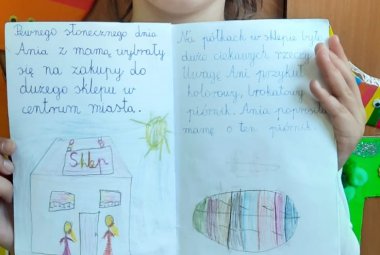 Pewnego słonecznego dnia
Ania z mamą wybrały
się na zakupy do
dużego sklepu w
centrum miasta.
Sklep
Na półkach w sklepie było
dużo ciekawych rzeczy.
Uwagę Ani przykuł
kolorowy, brokatowy
piórnik. Ania poprosiła
mamę o ten piórnik.